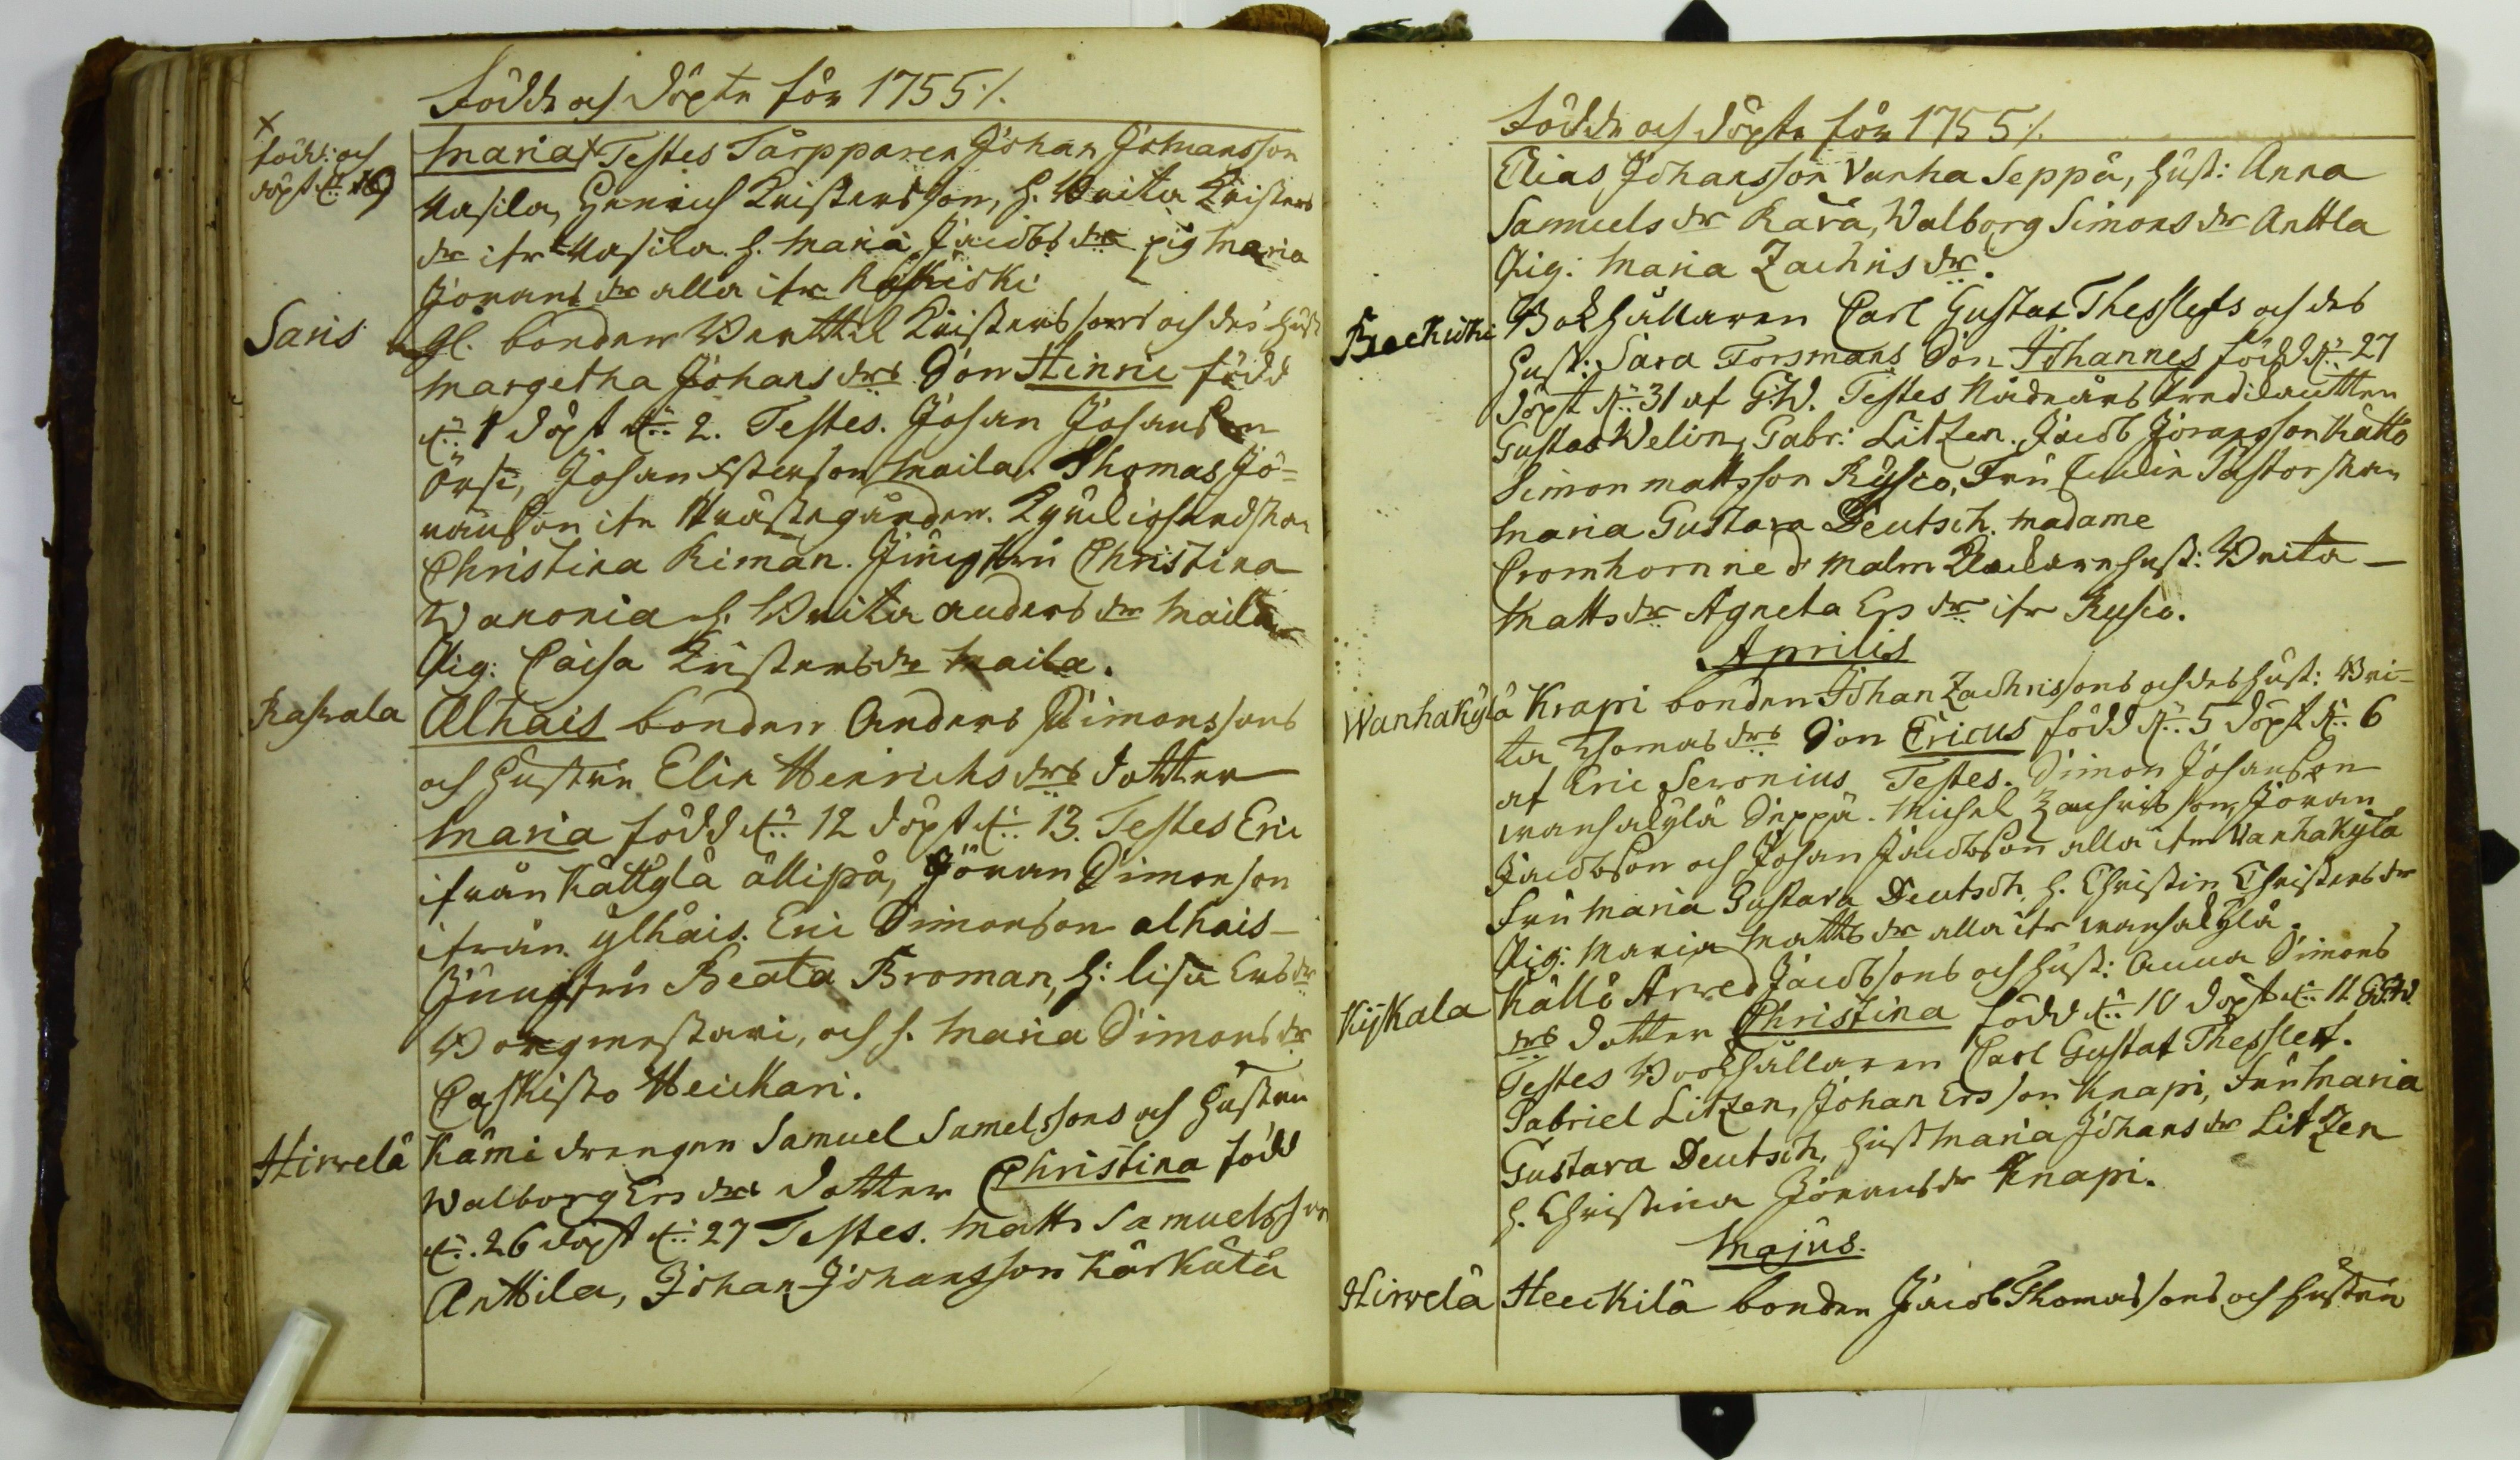 Födde och döpte för 1755 ⁒.
x
född: och
döpt d: 16
Maria x Testes Tårpparen Johan Johansson
Uasila, Henrich Kristersson, h. Brita Kristers
dr ifr Uasila. h. Maria Jacobs dr pig Maria
Jörans dr alla ifr
Saris gl. bonden Berttil Kristerssons och des hust
Margetha Johans drs Son Hinric född
d: 1 döpt d: 2. Testes. Johan Johansson
Örsi, Johan Estersson Maila. Thomas Jö=
ransson ifr Prästegården.
Christina Riman. Jungfru Christina
Wanonia h. Brita Anders dr Maila
Pig: Caisa Kristers dr Maila.
Raskala Alhais bonden Anders Simonssons
och Hustru Elin Henrichs drs dotter
Maria född d: 12 döpt d: 13. Testes Eric
ifrån Kåttylä ållipå, Jöran Simonson
ifrån ylhais. Eric Simonson alhais
Jungfru Beata Broman, h: Lisa Ers dr
Borgmestari, och h. Maria Simons dr
Paskisto Heickari.
Hirvelä Kämi drengen Samuel Samelssons och Hustru
Walborg Ers drs dotter Christina född
d: 26 döpt d: 27 Testes. Matts Samuelsson
Anttila, Johan Johansson Kärkätä
Födde och döpte för 1755 ⁒.
Elias Johansson Vanha Seppä, hust: Anna
Samuels dr Rava, Walborg Simons dr Anttla
Pig: Maria Zachris dr.
Bokhållaren Carl Gustaf Thesslefs och des
Hust: Sara Forsmans Son Johannes född d: 27
döpt d: 31 af G:W. Testes
Gustav Welin, Gabr: Litzen. Jacob Jöransson Kättö
Simon Mattsson Rysco, Fru Pastorskan
Maria Gustava Deutsch. Madame
Cromhorn ne d: Malm hust: Brita
Matts dr Agneta Ers dr ifr Rysco.
Aprilis
Wanhakylä Knapi bonden Johan Zachrissons och des hust: Bri=
ta Thomas drs Son Ericus född d: 5 döpt d: 6
af Eric Seronius Testes. Simon Johansson
Wanhakylä Seppä. Michel Zachrisson, Jöran
Jacobsson och Johan Jacobsson alla ifrn Wanhakylä
Fru Maria Gustava Deutsch. h. Christin Christers dr
Pig: Maria Matts dr alla ifr Wanhakylä.
Kijkala Källö Arved Jacobssons och hust: Anna Simons
drs dotter Christina född d: 10 döpt d: 11 G:W.
Testes Bookhållaren Carl Gustaf Thesslef.
Gabriel Litzen, Johan Ersson Knapi, Fru Maria
Gustava Deutsch, hust Maria Johans dr Litzen
h. Christina Jörans dr Knapi.
Majus.
Hirvelä Heickilä bonden Jacob Thomassons och Hustru